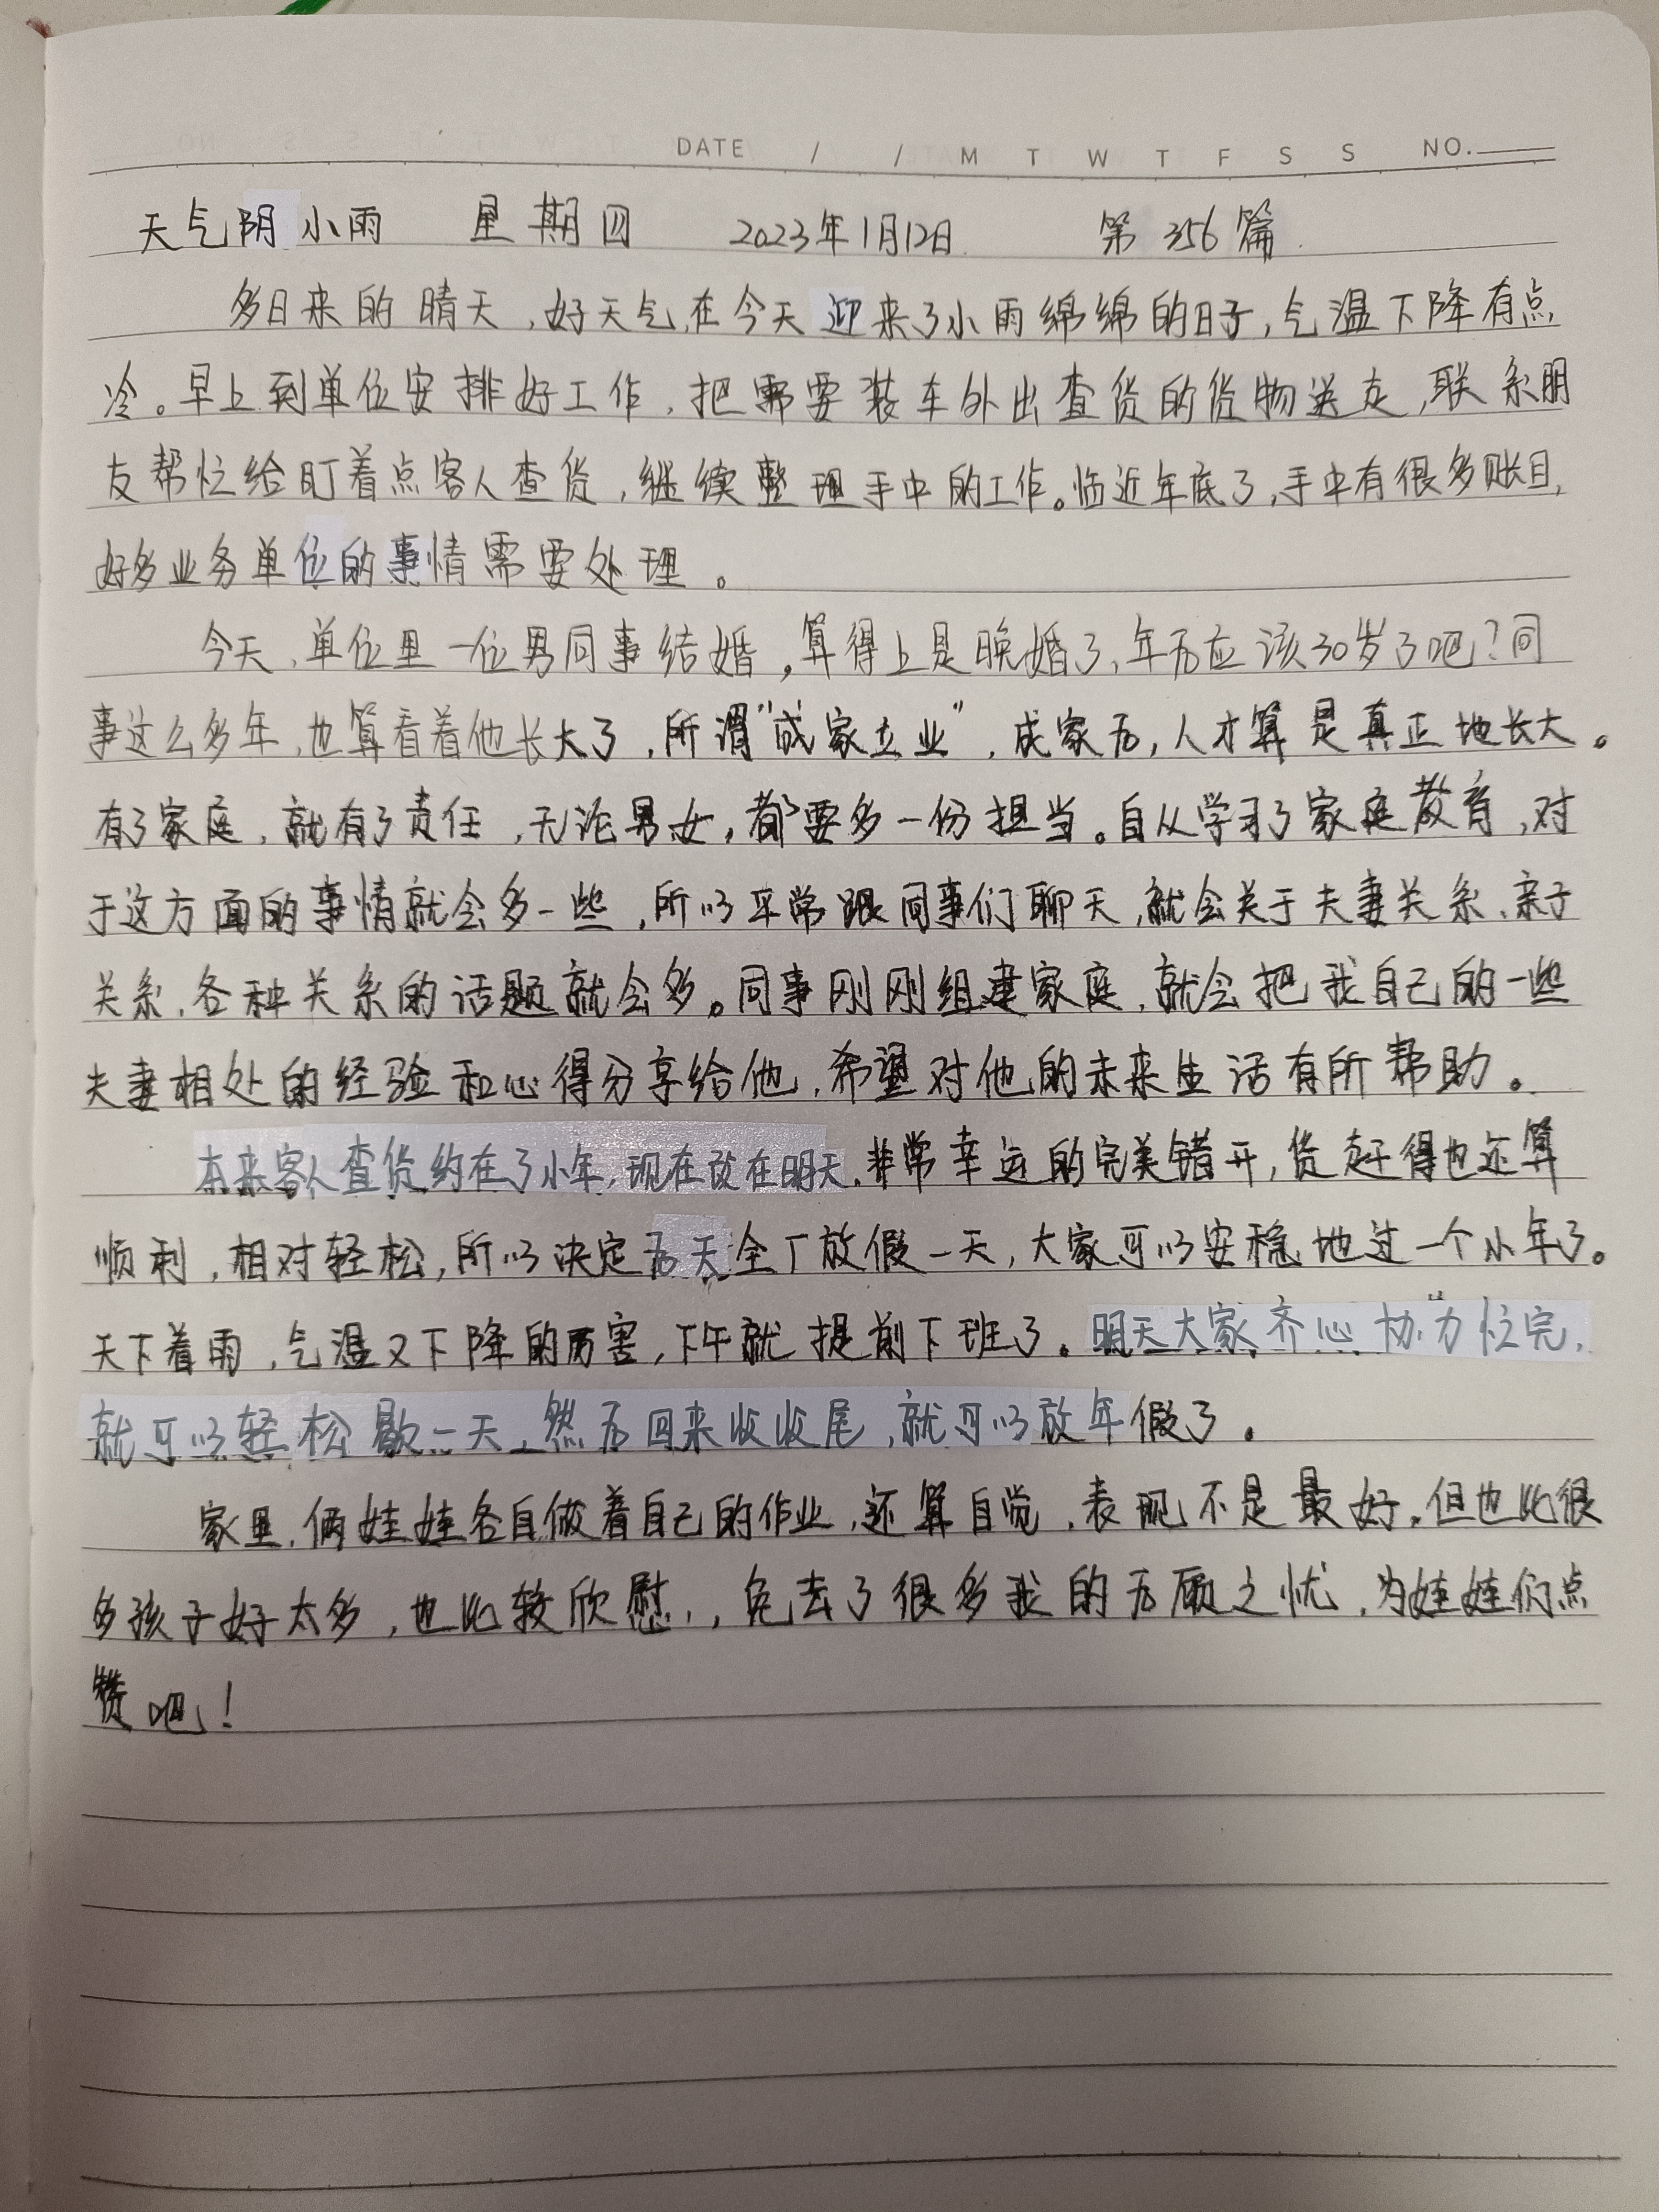 DATE / / M T W T F S S NO.
天气阴 小雨 星期四 2023年1月12日 第356篇
多日来的晴天,好天气,在今天迎来了小雨绵绵的日子,气温下降有点
冷。早上到单位安排好工作,把需要装车外出查货的货物送走,联系朋
友帮忙给盯着点客人查货,继续整理手中的工作。临近年底了,手中有很多账目,
好多业务单位的事情需要处理。
今天,单位里一位男同事结婚,算得上是晚婚了,年后应该30岁了吧?同
事这么多年,也算看着他长大了,所谓“成家立业”,成家后,人才算是真正地长大。
有了家庭,就有了责任,无论男女,都要多一份担当。自从学习了家庭教育,对
于这方面的事情就会多一些,所以平常跟同事们聊天,就会关于夫妻关系、亲子
关系、各种关系的话题就会多。同事刚刚组建家庭,就会把我自己的一些
夫妻相处的经验和心得分享给他,希望对他的未来生活有所帮助。
本来客人查货约在了小年,现在改在明天,非常幸运的完美错开,货赶得也还算
顺利,相对轻松,所以决定后天全厂放假一天,大家可以安稳地过一个小年了。
天下着雨,气温又下降的厉害,下午就提前下班了。明天大家齐心协力忙完,
就可以轻松歇一天,然后回来收收尾,就可以放年假了。
家里,俩娃娃各自做着自己的作业,还算自觉,表现不是最好,但也比很
多孩子好太多,也比较欣慰,,免去了很多我的后顾之忧,为娃娃们点
赞吧!